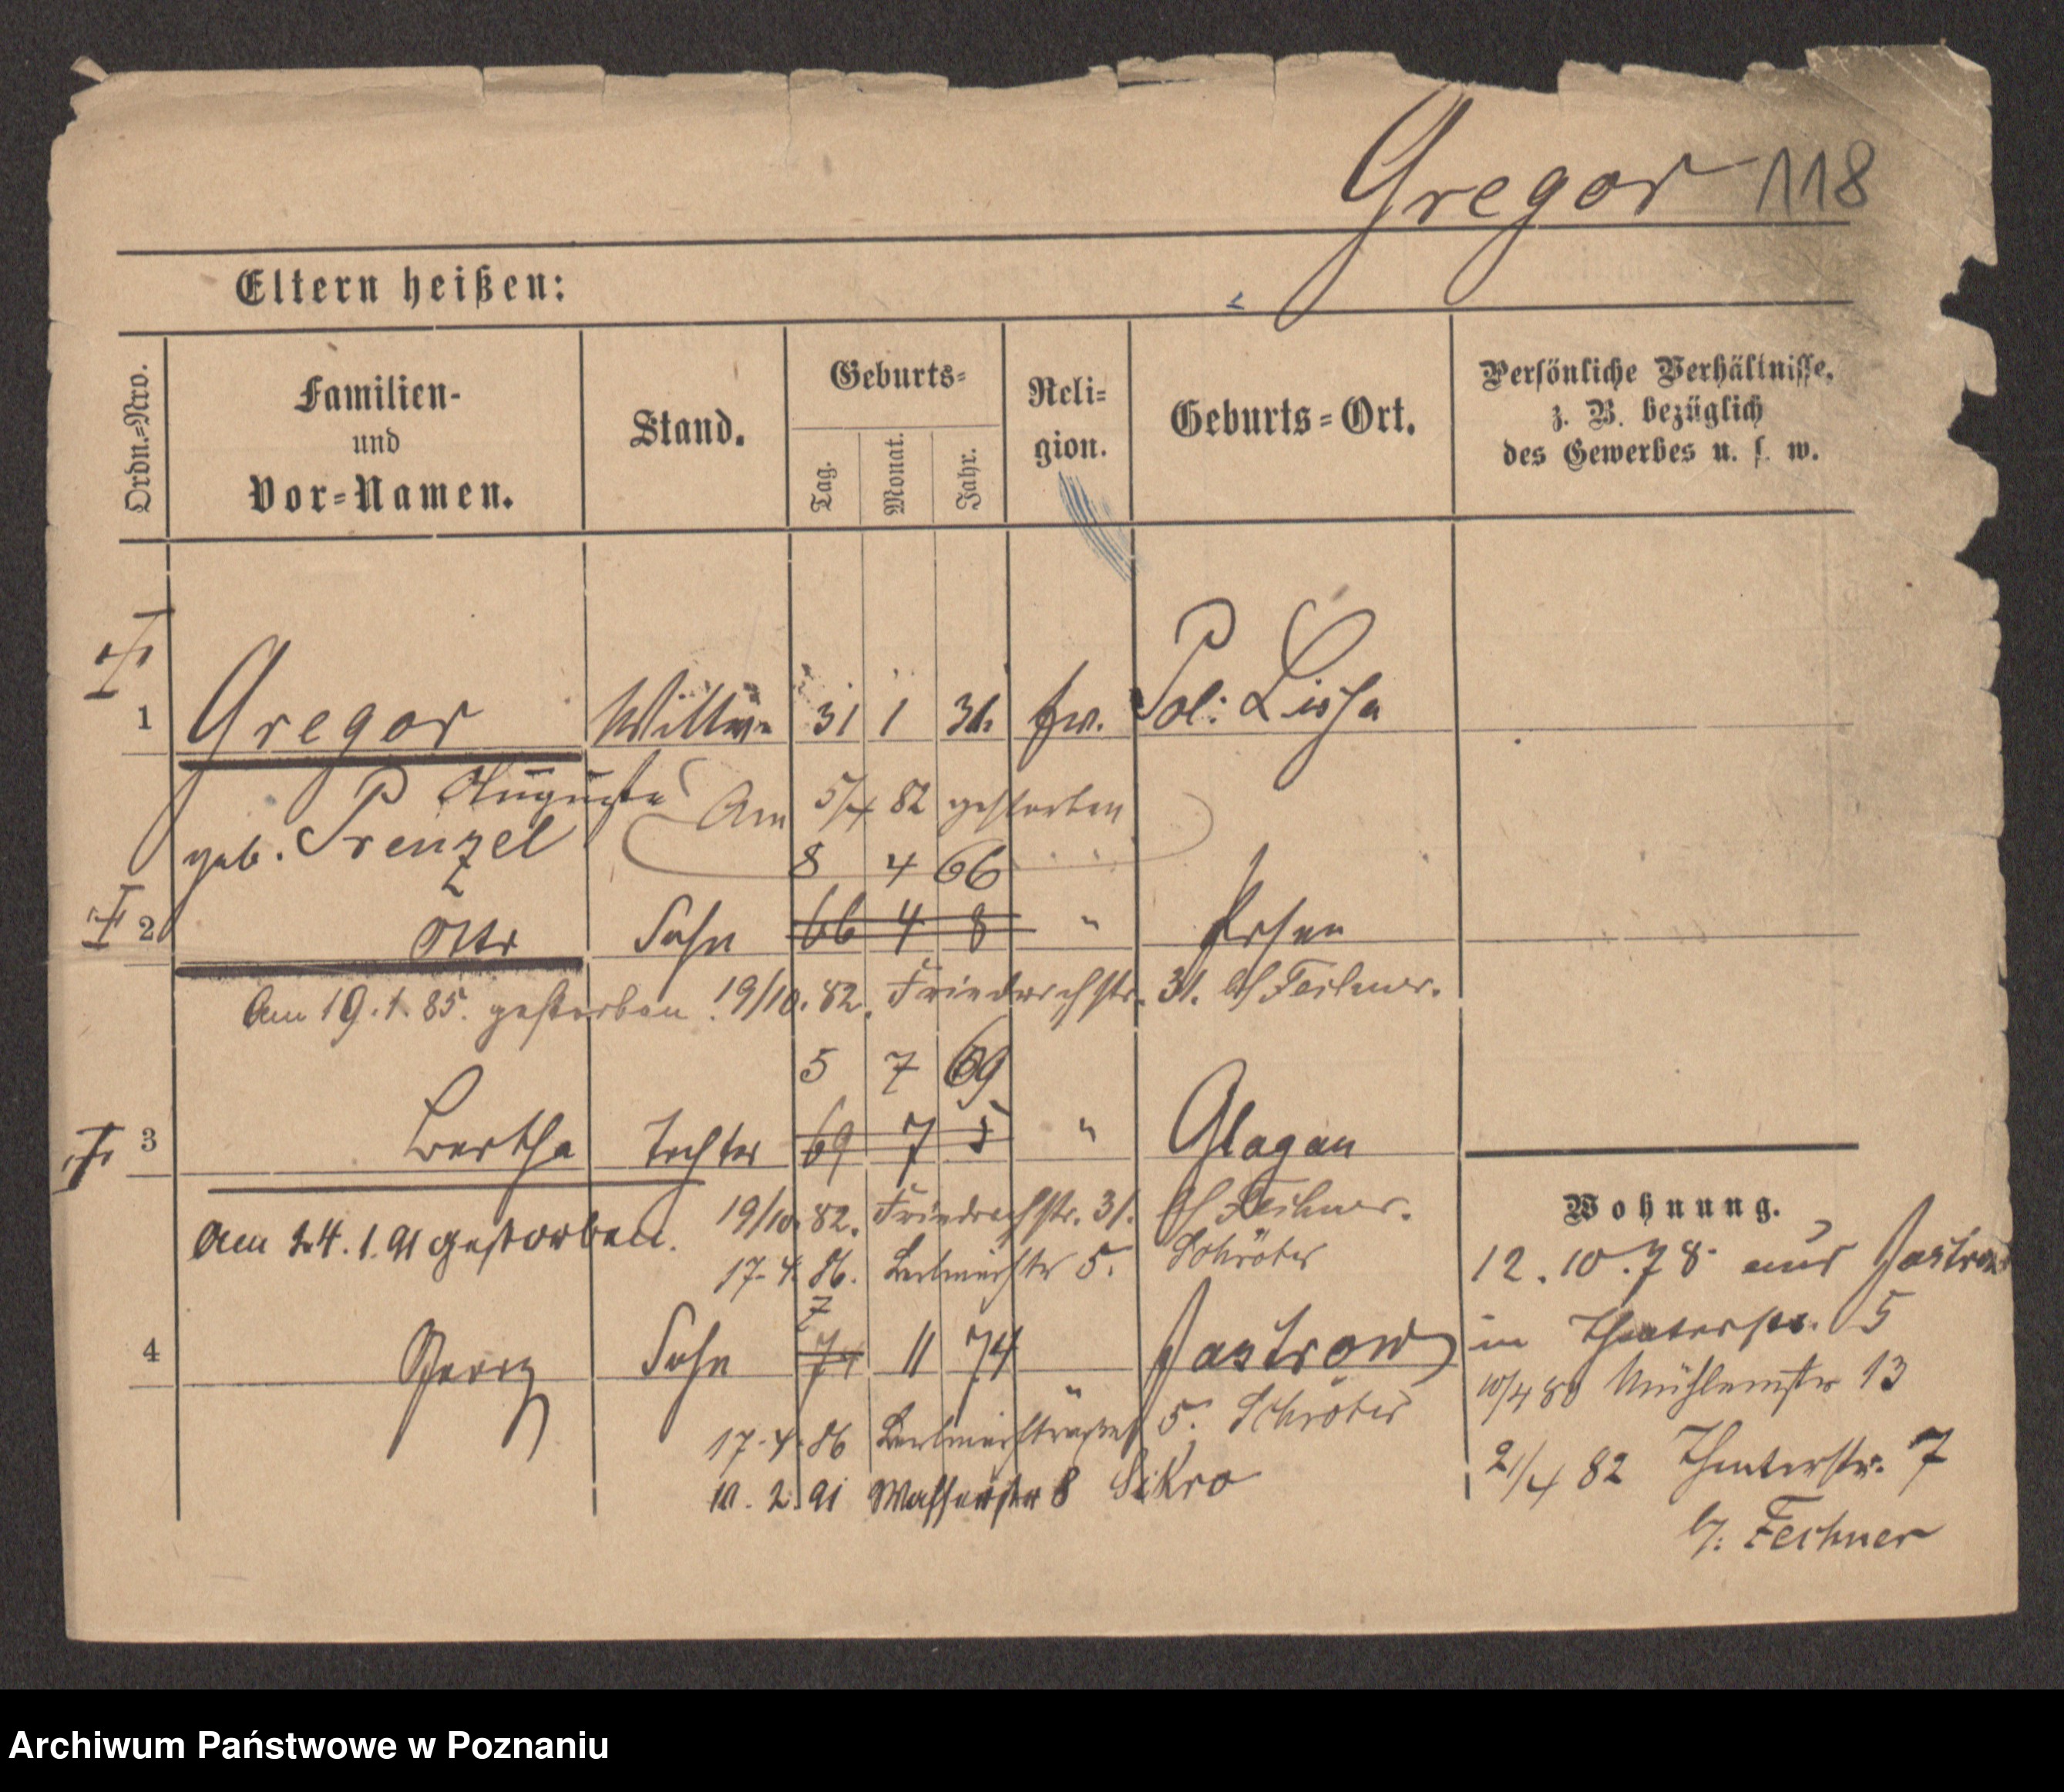 Gregor 118
Eltern heißen:
Ordn.-Nro.
Familien- und Vor-Namen.
Stand.
Geburts-
Tag. Monat. Jahr.
Religion.
Geburts-Ort.
Persönliche Verhältnisse, z. B. bezüglich des Gewerbes u. s. w.
1 Gregor Wittwe 31 1 31. ev. Pol: Lissa
Auguste Am 5/4 82 gestorben
geb. Prenzel
8 4 66
2 Otto Sohn 66 4 8 " Posen
Am 19.1.85. gestorben. 19/10.82. Friedrichstr. 31. b/ Fechner.
5 7 69
3 Bertha Tochter 69 7 5 " Glogau
19/10.82. Friedrichstr. 31. b/ Fechner.
Am 24.1.91 gestorben.
17.4.86. 5. Schröter
7
4 Georg Sohn 11 74 " Jastrow
17.4.86 5. Schröter
10.2.91 Wasserstr 8
Wohnung.
12.10.78 aus Jastrow
in Theaterstr. 5
10/4 80 Mühlenstr 13
21/4 82 Theaterstr. 7
b/: Fechner
Archiwum Państwowe w Poznaniu